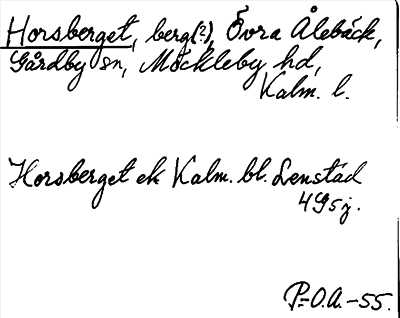 Horsberget, berg(?), Övra Ålebäck,
Gårdby sn, Möckleby hd,
Kalm. l.
Horsberget ek Kalm. bl. Lenstad
4G5j.
P.-O.A.-55.